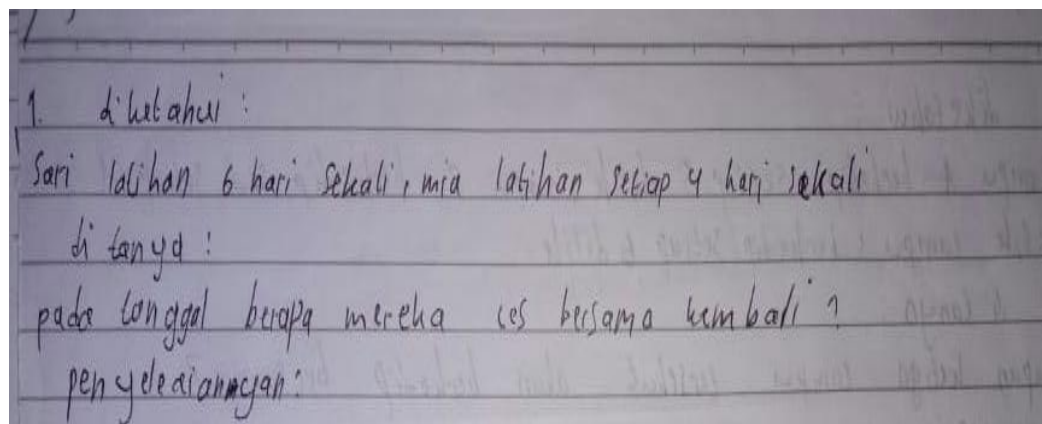 1. diketahui :
Sari latihan 6 hari sekali, mia latihan setiap 4 hari sekali
di tanya :
pada tanggal berapa mereka les bersama kembali ?
penyeleaiannyan :